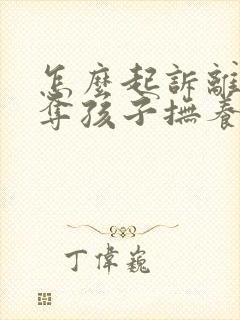 怎麼起訴離
奪孩子撫養
丁偉巍